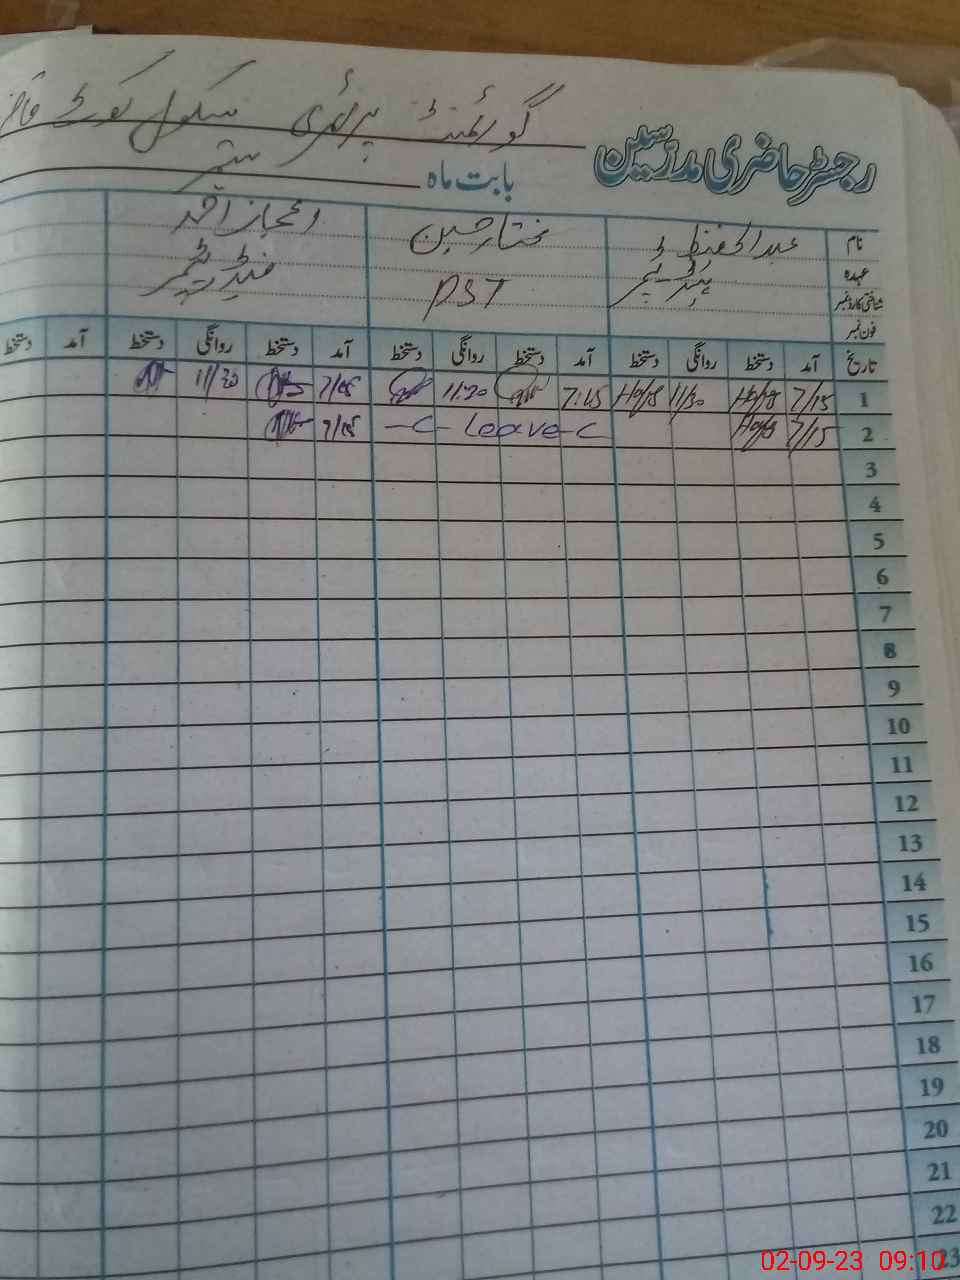 گورنمنٹ پرائمری سکول کوٹ
رجسٹر حاضری مدرسین
بابت ماہ ستمبر
نام عبدالحفیظ مختار حسین اعجاز احمد
عہدہ ہیڈ ٹیچر PST
شناختی کارڈ نمبر
فون نمبر
تاریخ آمد دستخط روانگی دستخط آمد دستخط روانگی دستخط آمد دستخط روانگی دستخط آمد دستخط
1 7/15 11/30 7:15 11:30 7/15 11/30
2 7/15 -C- Leave -C 7/15
3
4
5
6
7
8
9
10
11
12
13
14
15
16
17
18
19
20
21
22
23
02-09-23 09:10